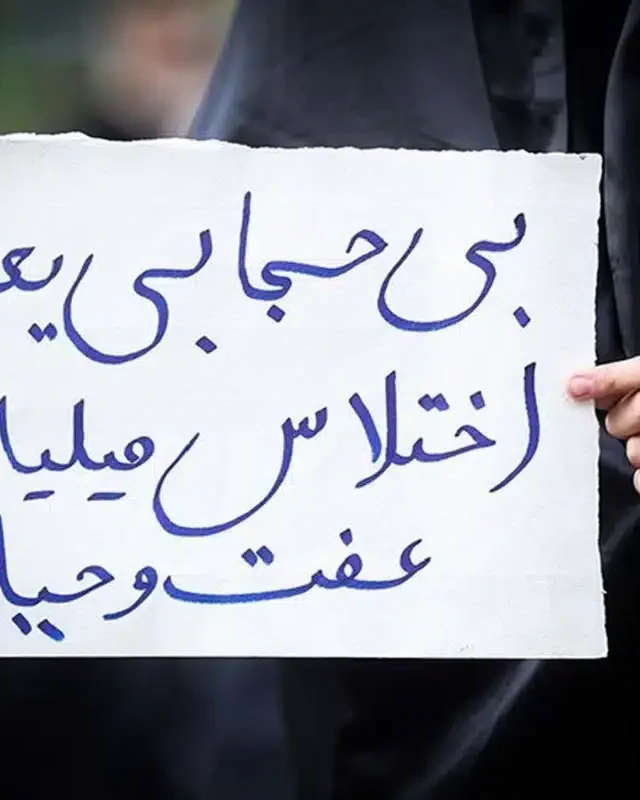 بی حجابی یع
اختلاس میلیا
عفت و حیا